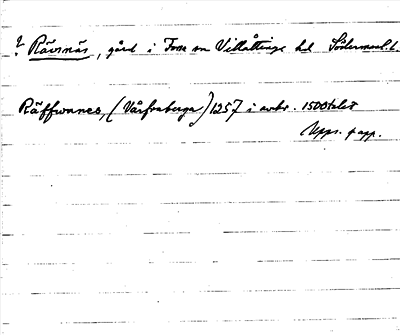 ? Rävsnäs, gård i Fors sn Villåttinge hd Södermanl. l.
Räffwanes, (Vårfruberga) 1257 i avskr. 1500talet
Upps. papp.